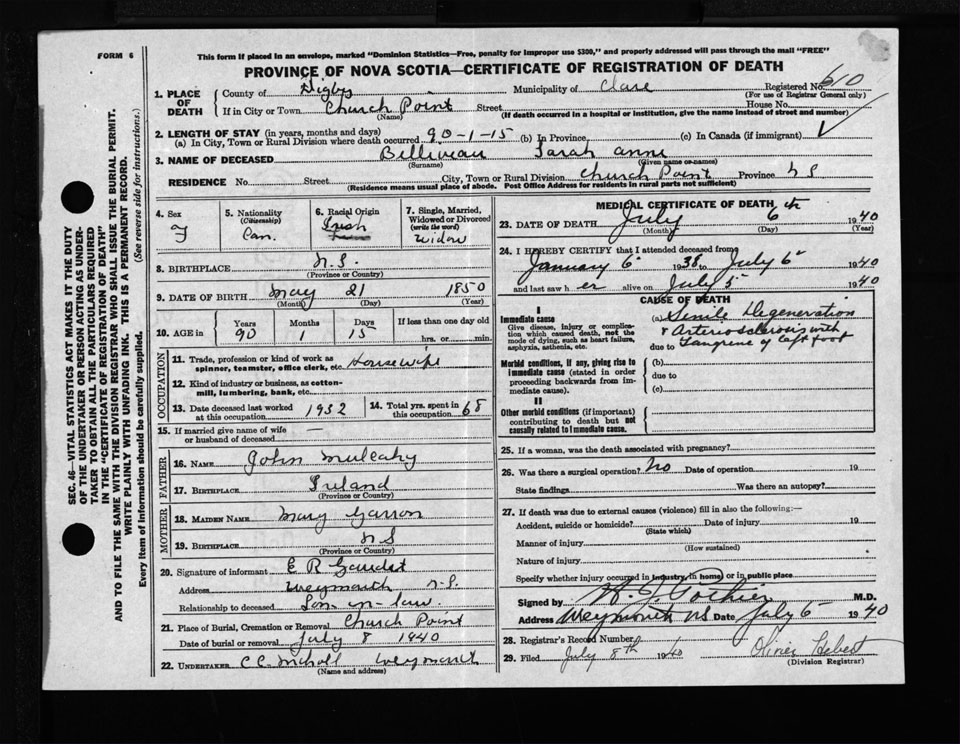 FORM 6
This form if placed in an envelope, marked "Dominion Statistics—Free, penalty for improper use $300," and properly addressed will pass through the mail "FREE"
PROVINCE OF NOVA SCOTIA—CERTIFICATE OF REGISTRATION OF DEATH
SEC. 46—VITAL STATISTICS ACT MAKES IT THE DUTY
OF THE UNDERTAKER OR PERSON ACTING AS UNDER-
TAKER TO OBTAIN ALL THE PARTICULARS REQUIRED
IN THE "CERTIFICATE OF REGISTRATION OF DEATH"
AND TO FILE THE SAME WITH THE DIVISION REGISTRAR WHO SHALL ISSUE THE BURIAL PERMIT.
WRITE PLAINLY WITH UNFADING INK. THIS IS A PERMANENT RECORD.
Every item of information should be carefully supplied. (See reverse side for instructions.)
1. PLACE OF DEATH County of Digby Municipality of Clare Registered No. 610
(For use of Registrar General only)
If in City or Town Church Point Street House No.
(Name) (If death occurred in a hospital or institution, give the name instead of street and number)
2. LENGTH OF STAY (in years, months and days)
(a) In City, Town or Rural Division where death occurred 90-1-15 (b) In Province (c) In Canada (if immigrant)
3. NAME OF DECEASED Belliveau Sarah Anne
(Surname) (Given name or names)
RESIDENCE No. Street City, Town or Rural Division Church Point Province N S
(Residence means usual place of abode. Post Office Address for residents in rural parts not sufficient)
4. Sex F
5. Nationality (Citizenship) Can.
6. Racial Origin Irish
7. Single, Married, Widowed or Divorced (write the word) Widow
8. BIRTHPLACE N.S.
(Province or Country)
9. DATE OF BIRTH May 21 1850
(Month) (Day) (Year)
10. AGE in Years 90 Months 1 Days 15 If less than one day old hrs. or min.
OCCUPATION
11. Trade, profession or kind of work as spinner, teamster, office clerk, etc. Housewife
12. Kind of industry or business, as cotton-mill, lumbering, bank, etc.
13. Date deceased last worked at this occupation 1932
14. Total yrs. spent in this occupation 68
15. If married give name of wife or husband of deceased —
FATHER
16. NAME John Mulcahy
17. BIRTHPLACE Ireland
(Province or Country)
MOTHER
18. MAIDEN NAME Mary Garron
19. BIRTHPLACE N S
(Province or Country)
20. Signature of informant E R Gaudet
Address Weymouth N.S.
Relationship to deceased Son-in-law
21. Place of Burial, Cremation or Removal Church Point
Date of burial or removal July 8 1940
22. UNDERTAKER C.C. Weymouth
(Name and address)
MEDICAL CERTIFICATE OF DEATH
23. DATE OF DEATH July 6th 1940
(Month) (Day) (Year)
24. I HEREBY CERTIFY that I attended deceased from
January 6 1938 to July 6 1940
and last saw her alive on July 5 1940
CAUSE OF DEATH
I
Immediate cause
Give disease, injury or complication which caused death, not the mode of dying, such as heart failure, asphyxia, asthenia, etc.
(a) Senile Degeneration
& Arteriosclerosis with
due to Gangrene of left foot
Morbid conditions, if any, giving rise to immediate cause (stated in order proceeding backwards from immediate cause).
(b)
due to
(c)
II
Other morbid conditions (if important) contributing to death but not causally related to immediate cause.
25. If a woman, was the death associated with pregnancy?
26. Was there a surgical operation? No Date of operation 19
State findings Was there an autopsy?
27. If death was due to external causes (violence) fill in also the following:—
Accident, suicide or homicide? Date of injury 19
(State which)
Manner of injury
(How sustained)
Nature of injury
Specify whether injury occurred in industry, in home, or in public place
Signed by Pothier M.D.
Address Weymouth NS Date July 6 1940
28. Registrar's Record Number
29. Filed July 8th 1940 Olivier Hebert
(Division Registrar)